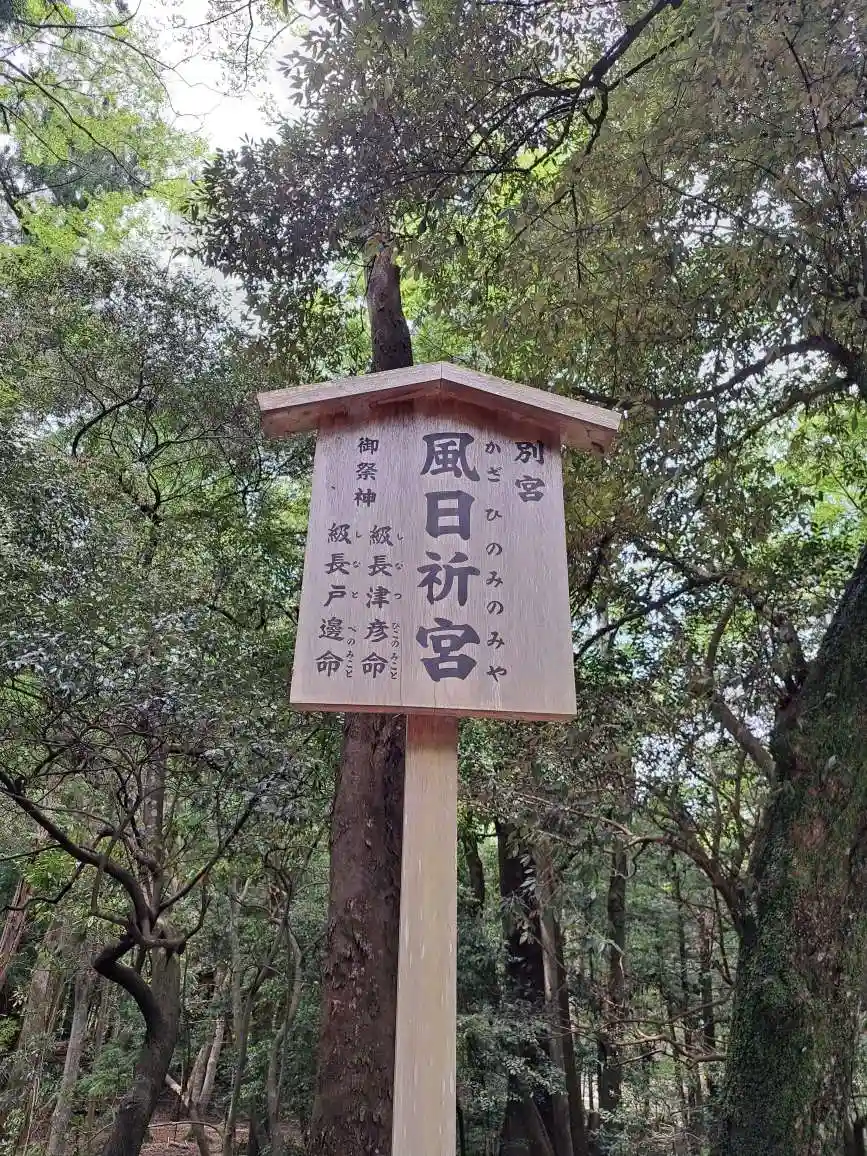 別宮
風日祈宮
かざひのみのみや
御祭神
級長津彦命
しなつひこのみこと
級長戸邊命
しなとべのみこと